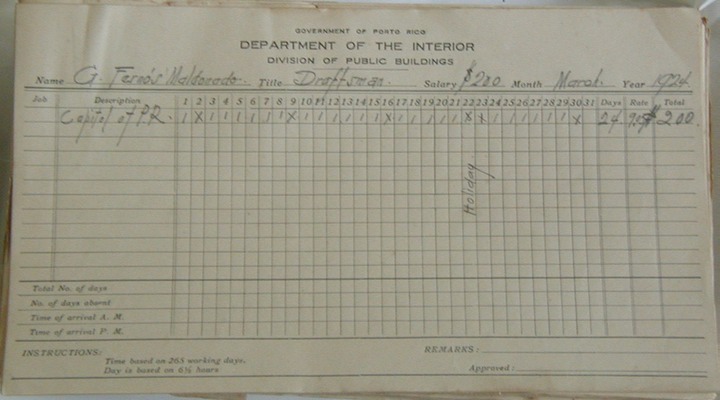 GOVERNMENT OF PORTO RICO
DEPARTMENT OF THE INTERIOR
DIVISION OF PUBLIC BUILDINGS
Name G. Fernós Maldonado Title Draftsman. Salary $200 Month March Year 1924
Job Description 1 2 3 4 5 6 7 8 9 10 11 12 13 14 15 16 17 18 19 20 21 22 23 24 25 26 27 28 29 30 31 Days Rate Total
Capitol of P.R. / X / / / / / / X / / / / / / X / / / / / X X / / / / / / X / 24 $200.
Holiday
Total No. of days
No. of days absent
Time of arrival A. M.
Time of arrival P. M.
INSTRUCTIONS:
Time based on 265 working days.
Day is based on 6½ hours
REMARKS:
Approved: